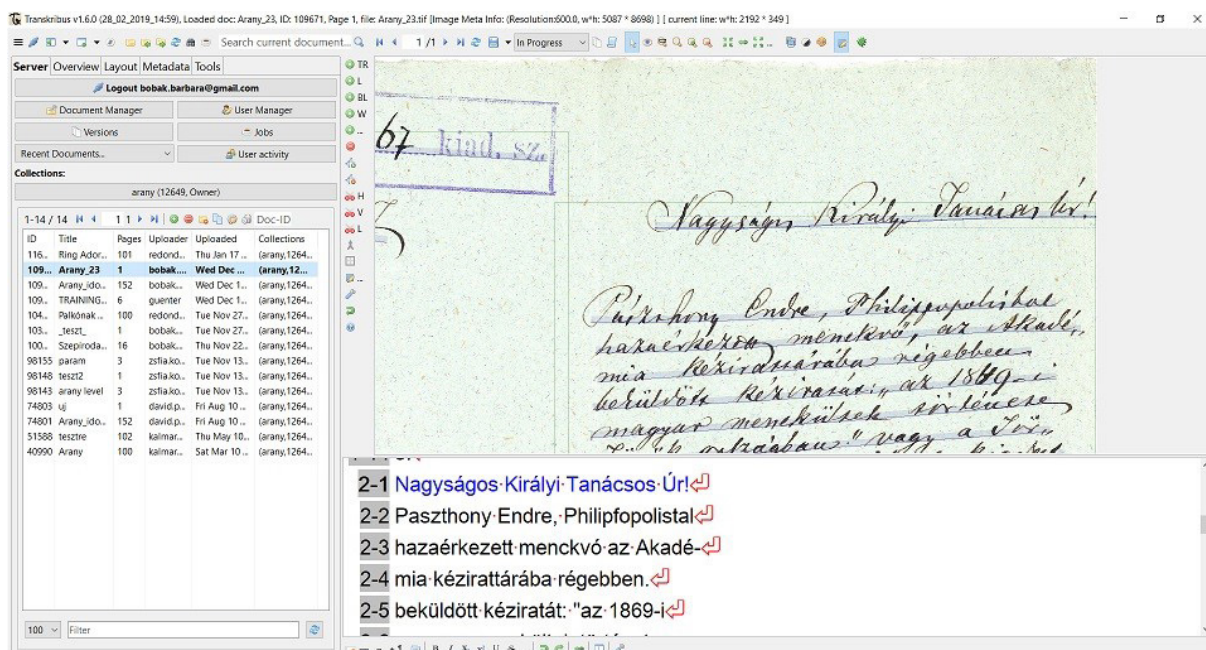 Transkribus v1.6.0 (28_02_2019_14:59), Loaded doc: Arany_23, ID: 109671, Page 1, file: Arany_23.tif [Image Meta Info: (Resolution:600.0, w*h: 5087 * 8698) ] [ current line: w*h: 2192 * 349 ]
Search current document... 1 /1 In Progress
Server Overview Layout Metadata Tools
Logout bobak.barbara@gmail.com
Document Manager User Manager
Versions Jobs
Recent Documents... User activity
Collections:
arany (12649, Owner)
1-14 / 14 1 1 Doc-ID
ID Title Pages Uploader Uploaded Collections
116... Ring Ador... 101 redond... Thu Jan 17 ... (arany,1264...
109... Arany_23 1 bobak.... Wed Dec ... (arany,12...
109... Arany_ido... 152 bobak... Wed Dec 1... (arany,1264...
109... TRAINING... 6 guenter Wed Dec 1... (arany,1264...
104... Palkónak ... 100 redond... Tue Nov 27... (arany,1264...
103... _teszt_ 1 bobak... Tue Nov 27... (arany,1264...
100... Szepiroda... 16 bobak... Thu Nov 22... (arany,1264...
98155 param 3 zsfia.ko... Tue Nov 13... (arany,1264...
98148 teszt2 1 zsfia.ko... Tue Nov 13... (arany,1264...
98143 arany level 3 zsfia.ko... Tue Nov 13... (arany,1264...
74803 uj 1 david.p... Fri Aug 10 ... (arany,1264...
74801 Arany_ido... 152 david.p... Fri Aug 10 ... (arany,1264...
51588 tesztre 102 kalmar... Thu May 10... (arany,1264...
40990 Arany 100 kalmar... Sat Mar 10 ... (arany,1264...
100 Filter
TR
L
BL
W
...
H
V
L
...
67 kiad. sz.
Nagyságos Királyi Tanácsos Úr!
Endre, Philippopolisból
hazaérkezett menekvő, az Akadé„
mia kézirattárába régebben
beküldött kéziratát: „az 1849-i
magyar menekültek története
vagy a Tör„
2-1 Nagyságos·Királyi·Tanácsos·Úr!
2-2 Paszthony·Endre,·Philipfopolistal
2-3 hazaérkezett·menckvó·az·Akadé-
2-4 mia·kézirattárába·régebben.
2-5 beküldött·kéziratát:·"az·1869-i